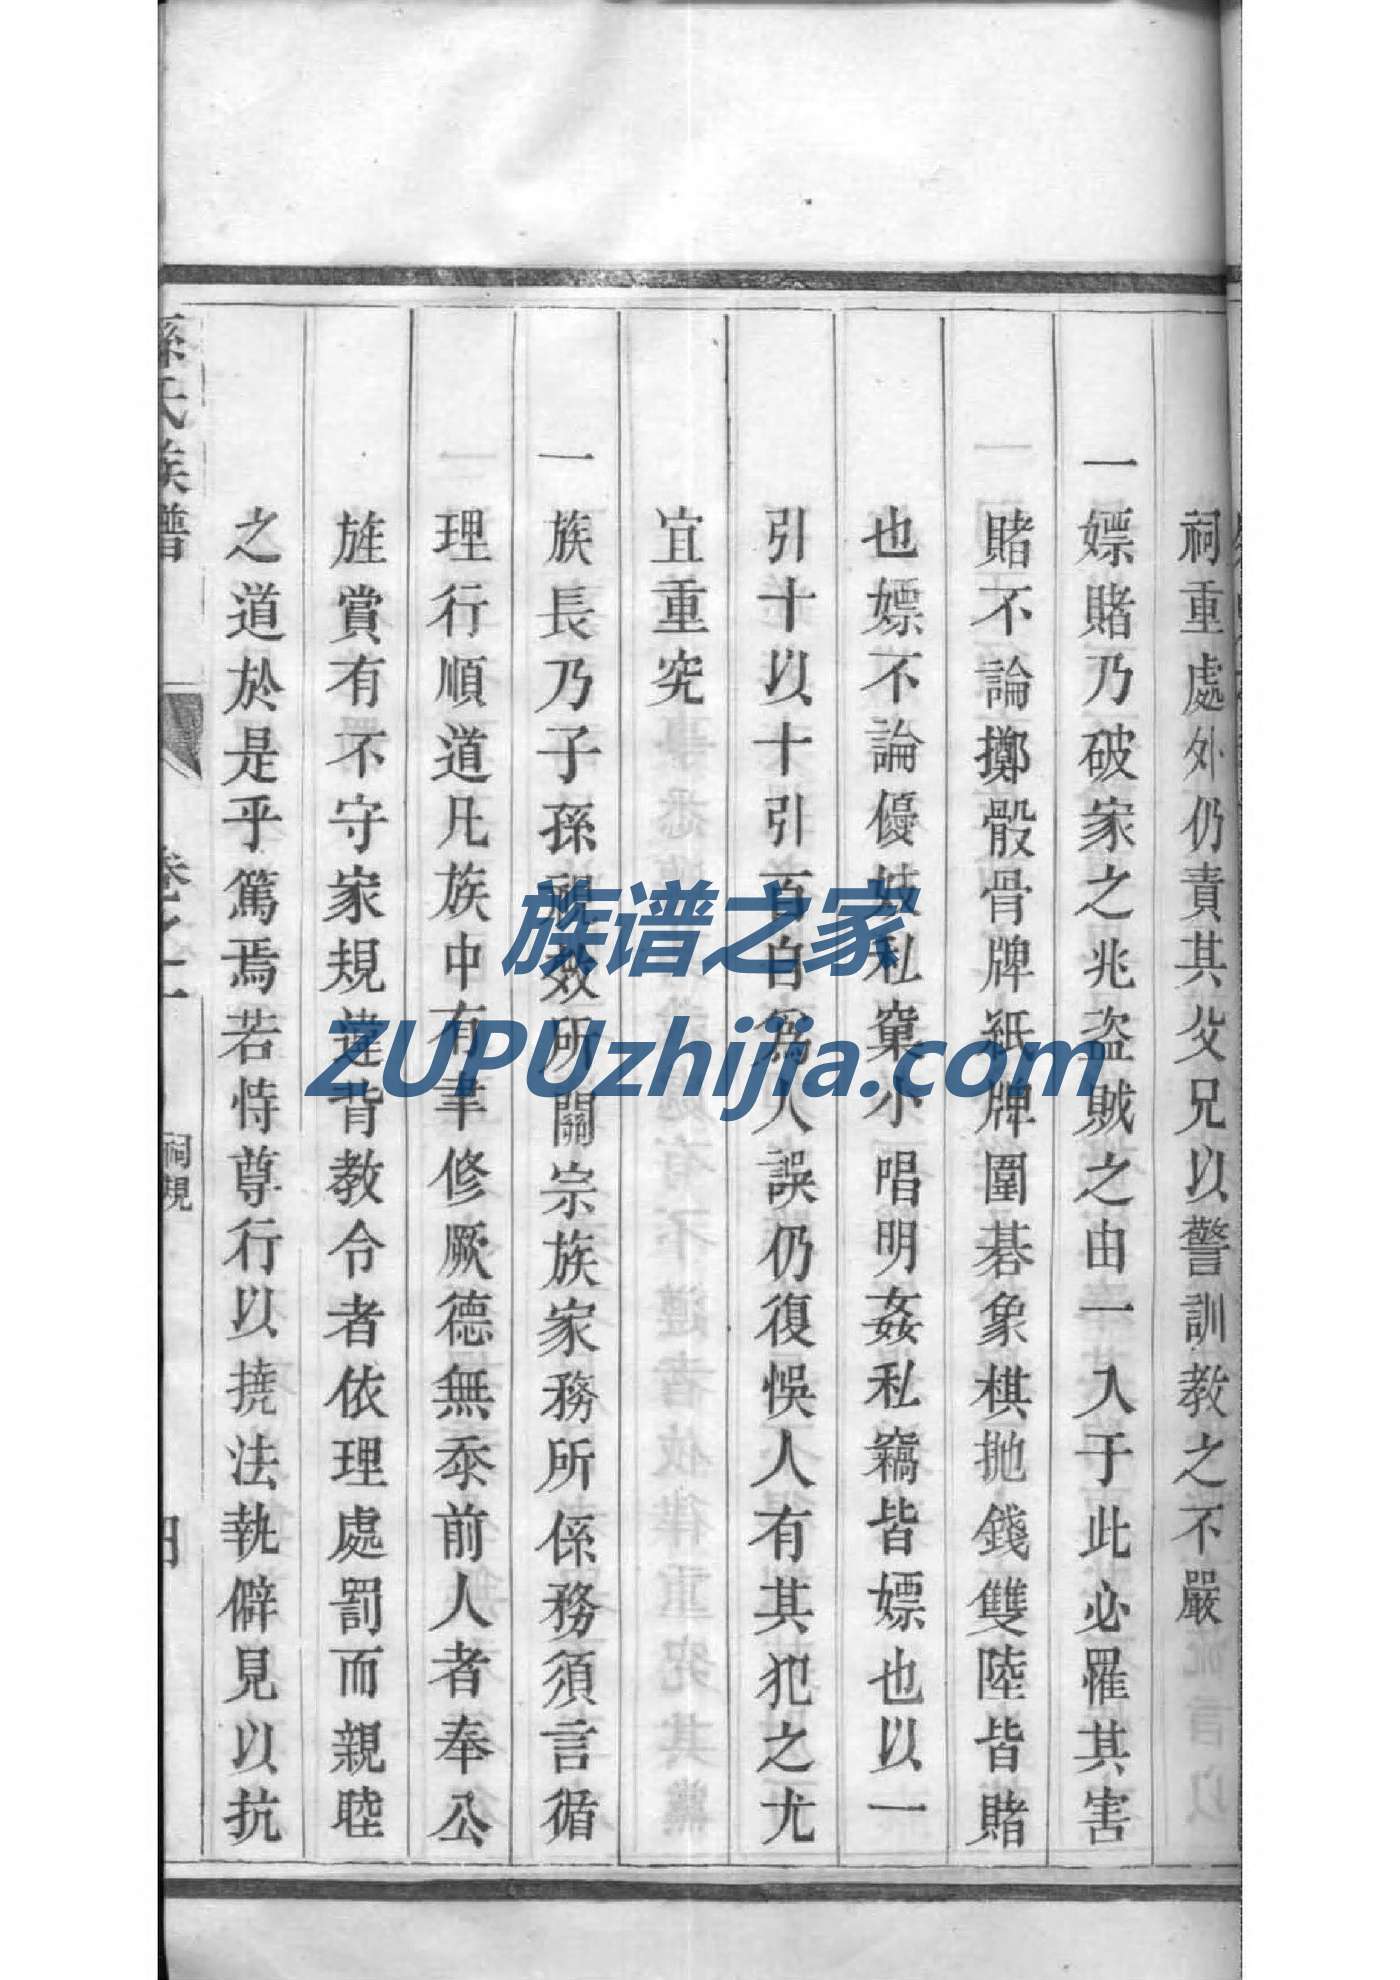 祠重處外仍責其父兄以警訓教之不嚴
一嫖賭乃破家之兆盗賊之由一入于此必罹其害
賭不論擲骰骨牌紙牌圍碁象棋抛錢雙陸皆賭
也嫖不論優妓私窠小唱明姦私竊皆嫖也以一
引十以十引百自爲人誤仍復悞人有其犯之尤
宜重究
一族長乃子孫視效所關宗族家務所係務須言循
理行順道凡族中有聿修厥德無忝前人者奉公
旌賞有不守家規違背教令者依理處罰而親睦
之道於是乎篤焉若恃尊行以撓法執僻見以抗
孫氏族譜
卷之一
祠規
四
族谱之家
ZUPUzhijia.com